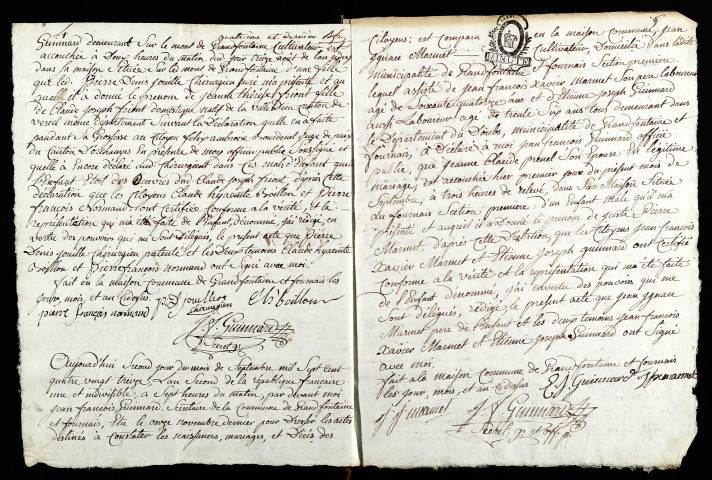 quatrieme et dernier
Guinnard demeurant Sur le mont de Grandfontaine Cultivateur, est
accouchée a Deux heures du matin dud jour treize août de l'an
dans sa maison Scituée Sur led mont de Grandfontaine d'une fille
que led Pierre Denis jouille Chirurgien m'a présenté et a
quelle il a donné le prenom de jeanne thérèse fille
de Claude joseph domestique natif de la ville Canton de
vercel même Département Suivant la Declaration quelle en a faite
pandant Sa Grossesse au Citoyen juge de paix
du Canton D'orchamps En présence de moy officier public Soussigné et
quelle a Encore déclaré aud Chirurgien dans Ces mals d'Enfant que
l'Enfant Etoit des Oeuvres dud Claude joseph d'après cette
déclaration que les Citoyens Claude hyacinte Boillon et Pierre
françois Normand ont Certifiée Conforme a la vérité, et la
représentation qui m'a été faite de l'Enfant dénommé, j'ai rédigé en
vertu des pouvoirs qui me Sont délégués, le présent acte que Pierre
Denis jouille Chirurgien patenté et les Deux témoins Claude hyacinte
Boillon et Pierre françois normand ont Signé avec moi.
fait en la maison Commune de Grandfontaine et fournais les
jour, mois, et an Cidessus
pierre françois normand P. D. jouille chirurgien C h boillon
J. f. Guinnard
Secret. g.
Aujourd'hui Second jour du mois de Septembre mil Sept cent
quatre vingt treize, L'an Second de la république françoise
une et indivisible, a Sept heures du matin, par devant moi
jean françois Guinnard, Secretaire de la Commune de Grandfontaine
et fournais, Elu le onze novembre dernier pour Dresser les actes
destinés a Constater les naissances, mariages, et Décès des
Citoyens; est Comparu en la maison Commune, jean
ignace Marmet Cultivateur, Domicilié dans ladite
municipalité de Grandfontaine et fournais Section premiere
lequel assisté de jean françois Xavier Marmet Son pere Laboureur
agé de Soixante quatorze ans et d'Etienne joseph Guinnard
aussi Laboureur agé de trente Six ans tous demeurant dans
le Département du Doubs, municipalité de Grandfontaine et
fournais, a Déclaré a moi jean françois Guinnard officier
public, que jeanne Claude prevel Son Epouse En légitime
mariage, est accouchée hier premier jour du présent mois de
Septembre, a trois heures de relevé, dans Sa Maison Scituée
au fournais Section premiere, d'un Enfant male qu'il m'a
présenté et auquel il a Donné le prenom de juste Pierre
Marmet d'après cette Déclaration que les Citoyens jean françois
Xavier Marmet et Etienne joseph Guinnard ont Certifié
Conforme a la vérité et la représentation qui m'a été faite
de l'Enfant dénommé, j'ai en vertu des pouvoirs qui me
Sont délégués, rédigé, le présent acte que jean ignace
Marmet pere de l'Enfant et les deux témoins jean françois
Xavier Marmet et Etienne joseph Guinnard ont Signé
avec moi.
fait a la maison Commune de Grandfontaine et fournais
les jour, mois, et an Cidessus E. J. Guinnard
J. J. marmet J. f. Guinnard
Secret. g. et off. p.